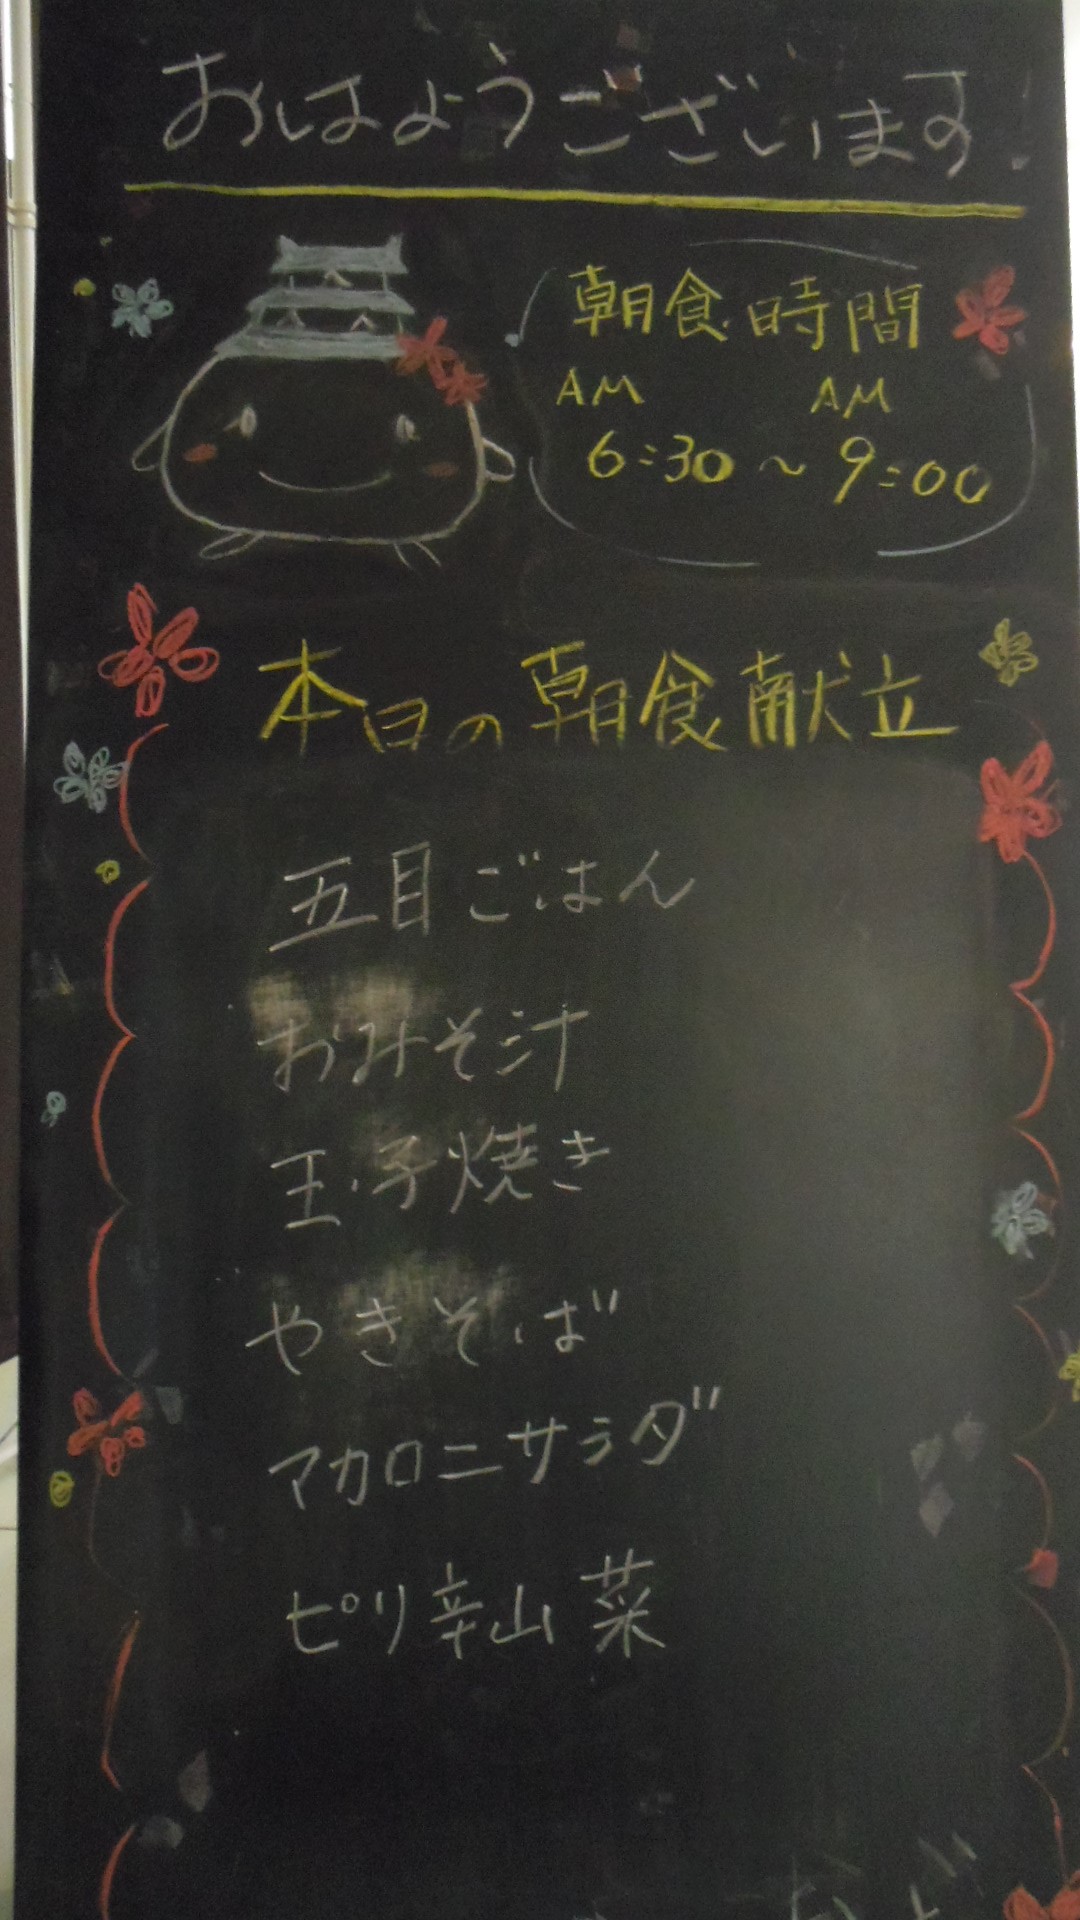 おはようございます!
朝食時間
AM AM
6:30～9:00
本日の朝食献立
五目ごはん
おみそ汁
玉子焼き
やきそば
マカロニサラダ
ピリ辛山菜